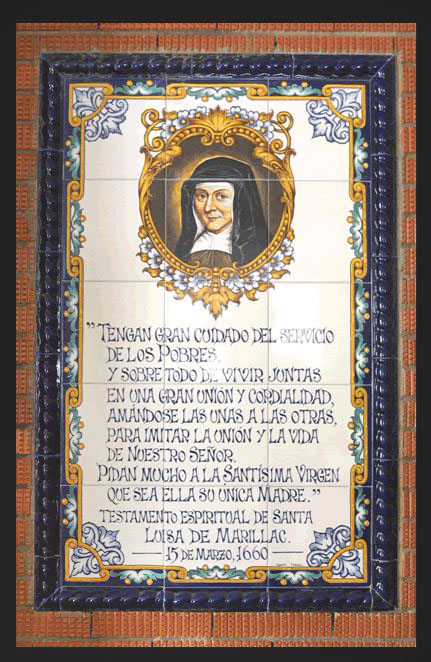 "TENGAN GRAN CUIDADO DEL SERVICIO
DE LOS POBRES,
Y SOBRE TODO DE VIVIR JUNTAS
EN UNA GRAN UNIÓN Y CORDIALIDAD,
AMÁNDOSE LAS UNAS A LAS OTRAS,
PARA IMITAR LA UNIÓN Y LA VIDA
DE NUESTRO SEÑOR.
PIDAN MUCHO A LA SANTÍSIMA VIRGEN
QUE SEA ELLA SU UNICA MADRE."
TESTAMENTO ESPIRITUAL DE SANTA
LUISA DE MARILLAC.
15 DE MARZO, 1660